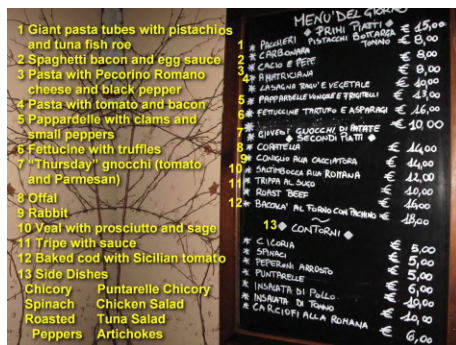 1 Giant pasta tubes with pistachios
and tuna fish roe
2 Spaghetti bacon and egg sauce
3 Pasta with Pecorino Romano
cheese and black pepper
4 Pasta with tomato and bacon
5 Pappardelle with clams and
small peppers
6 Fettucine with truffles
7 "Thursday" gnocchi (tomato
and Parmesan)
8 Offal
9 Rabbit
10 Veal with prosciutto and sage
11 Tripe with sauce
12 Baked cod with Sicilian tomato
13 Side Dishes
Chicory Puntarelle Chicory
Spinach Chicken Salad
Roasted Tuna Salad
Peppers Artichokes
MENU' DEL GIORNO
PRIMI PIATTI
1 * PACCHERI PISTACCHI BOTTARGA TONNO € 15,00
2 * CARBONARA € 8,00
3 * CACIO E PEPE € 8,00
4 * AMATRICIANA € 8,00
* LASAGNA RAGU' E VEGETALE € 10,00
5 * PAPPARDELLE VONGOLE E FRIGITELLI € 13,00
6 * FETTUCCINE TARTUFO E ASPARAGI € 16,00
7 * GIOVEDI' GNOCCHI DI PATATE € 10,00
SECONDI PIATTI
8 * CORATELLA € 14,00
9 * CONIGLIO ALLA CACCIATORA € 14,00
10 * SALTIMBOCCA ALLA ROMANA € 12,00
11 * TRIPPA AL SUGO € 10,00
* ROAST BEEF € 16,00
12 * BACCALA' AL FORNO CON PACHINO € 18,00
13 CONTORNI
* CICORIA € 5,00
* SPINACI € 5,00
* PEPERONI ARROSTO € 5,00
* PUNTARELLE € 6,00
* INSALATA DI POLLO € 10,00
* INSALATA DI TONNO € 10,00
* CARCIOFI ALLA ROMANA € 6,00